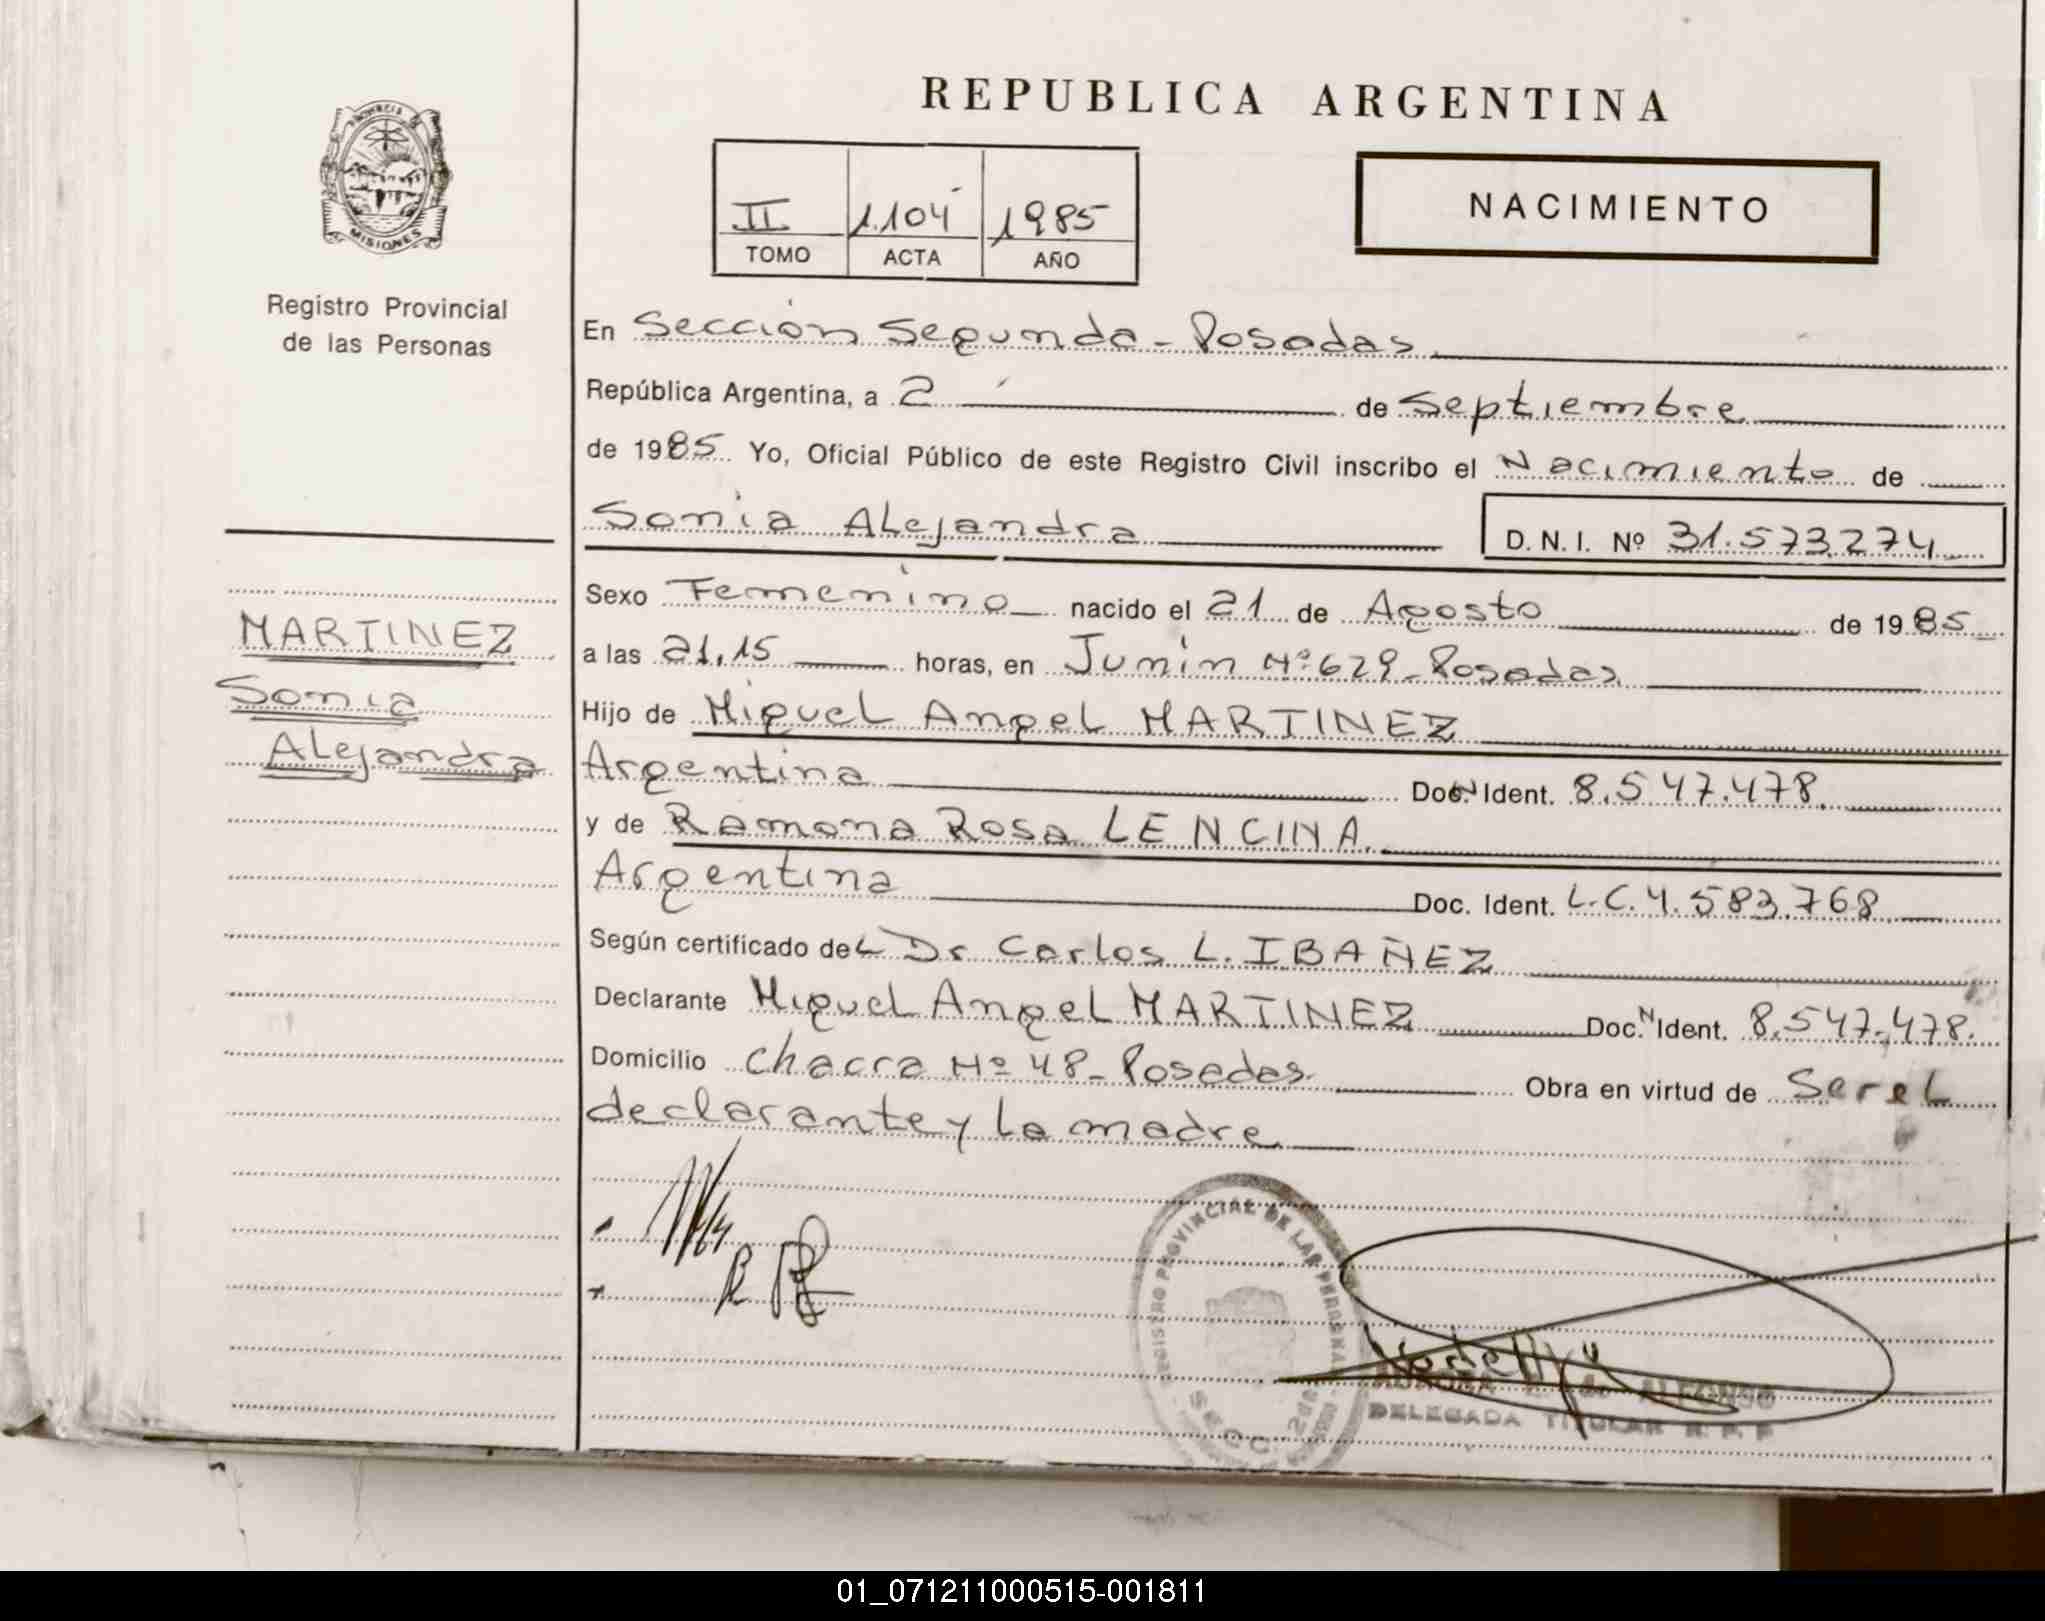 REPUBLICA ARGENTINA
PROVINCIA DE
MISIONES
Registro Provincial
de las Personas
II 1.104 1985
TOMO ACTA AÑO
NACIMIENTO
En Sección Segunda - Posadas
República Argentina, a 2 de Septiembre
de 1985 Yo, Oficial Público de este Registro Civil inscribo el Nacimiento de
Sonia Alejandra D. N. I. Nº 31.573.274
Sexo Femenino nacido el 21 de Agosto de 1985
a las 21,15 horas, en Junín Nº 629 - Posadas
Hijo de Miguel Angel MARTINEZ
Argentina Doc. N Ident. 8.547.478.
y de Ramona Rosa LENCINA.
Argentina Doc. Ident. L.C. 4.583.768
Según certificado del Dr Carlos L. IBAÑEZ
Declarante Miguel Angel MARTINEZ Doc. N Ident. 8.547.478.
Domicilio Chacra Nº 48 - Posadas Obra en virtud de Ser el
declarante y la madre
MARTINEZ
Sonia
Alejandra
REGISTRO PROVINCIAL DE LAS PERSONAS
SECC. 2da
ALFONSO
DELEGADA TITULAR R. P. P.
01_071211000515-001811